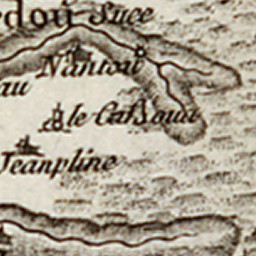 edou Suce
Nantou
au
le Cassoua
Jeanpline